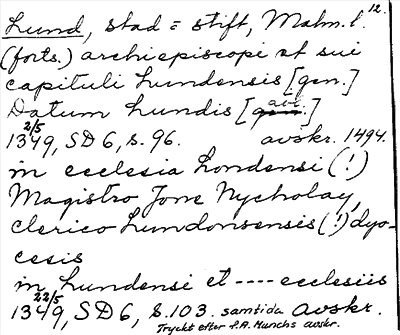 Lund, stad = stift, Malm. l. 12.
(forts.) archiepiscopi et sui
capituli Lundensis [gen.]
Datum Lundis [abl.]
2/5 1349, SD 6, s. 96. avskr. 1494.
in ecclesia Londensi (!)
Magistro Jone Nycholay,
clerico Lundonsensis (!) dyo-
cesis
in Lundensi et ---- ecclesiis
22/5 1349, SD 6, s. 103. samtida avskr.
Tryckt efter P. A. Munchs avskr.